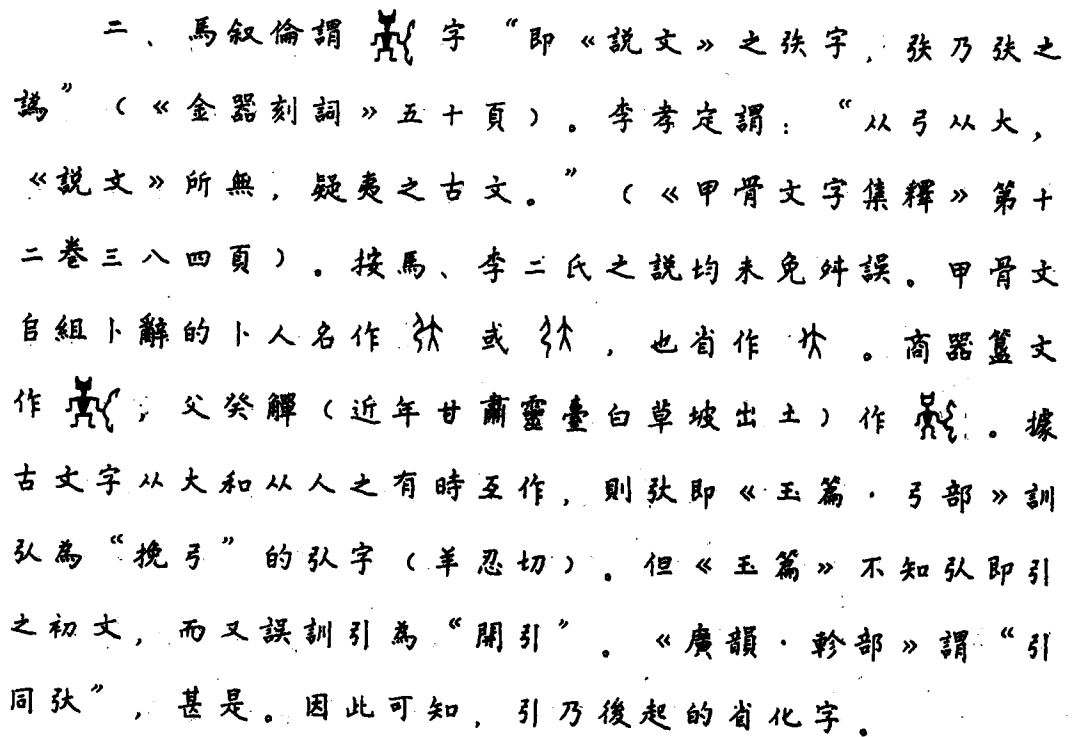 二、馬叙倫謂字“即《説文》之字,乃之
譌”(《金器刻詞》五十頁)。李孝定謂:“从弓从大,
《説文》所無,疑夷之古文。”(《甲骨文字集釋》第十
二卷三八四頁)。按馬、李二氏之説均未免舛誤。甲骨文
𠂤組卜辭的卜人名作或,也省作。商器簋文
作,父癸觶(近年甘肅靈臺白草坡出土)作。據
古文字从大和从人之有時互作,則即《玉篇·弓部》訓
為“挽弓”的字(羊忍切)。但《玉篇》不知即引
之初文,而又誤訓引為“開引”。《廣韻·軫部》謂“引
同”,甚是。因此可知,引乃後起的省化字。